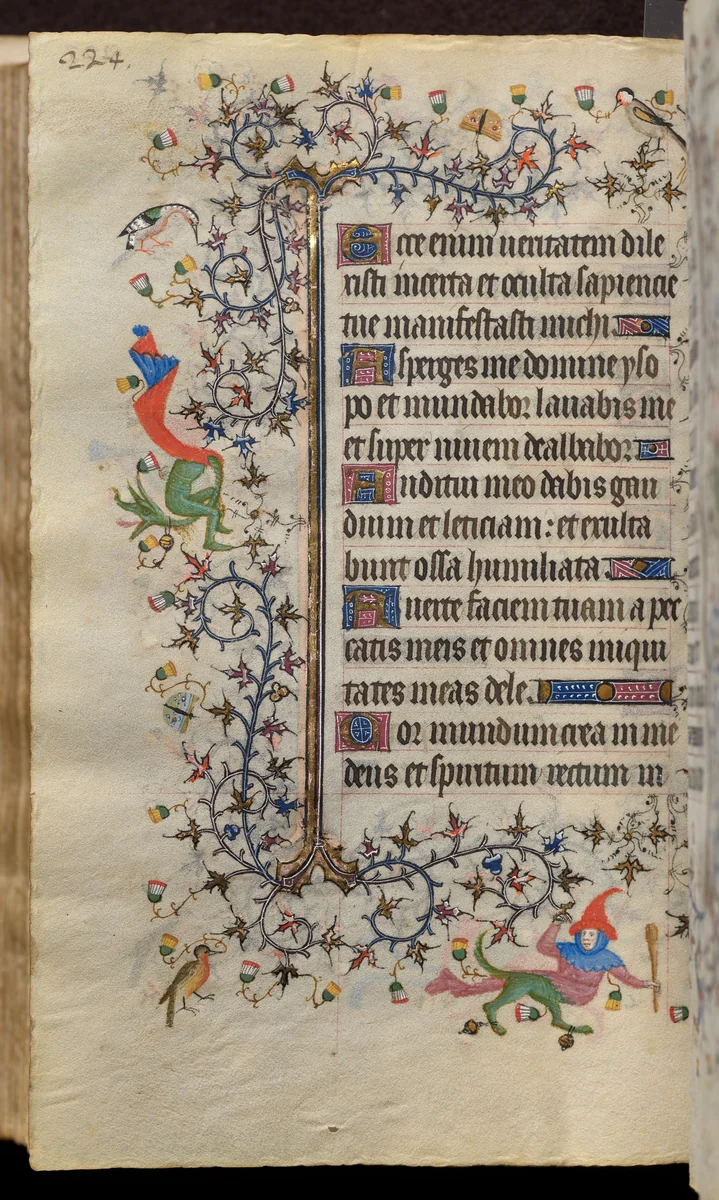 224.
Ecce enim ueritatem dile
xisti incerta et occulta sapiencie
tue manifestasti michi
Asperges me domine yso
po et mundabor lauabis me
et super niuem dealbabor
Auditui meo dabis gau
dium et leticiam: et exulta
bunt ossa humiliata
Auerte faciem tuam a pec
catis meis et omnes iniqui
tates meas dele
Cor mundum crea in me
deus et spiritum rectum in